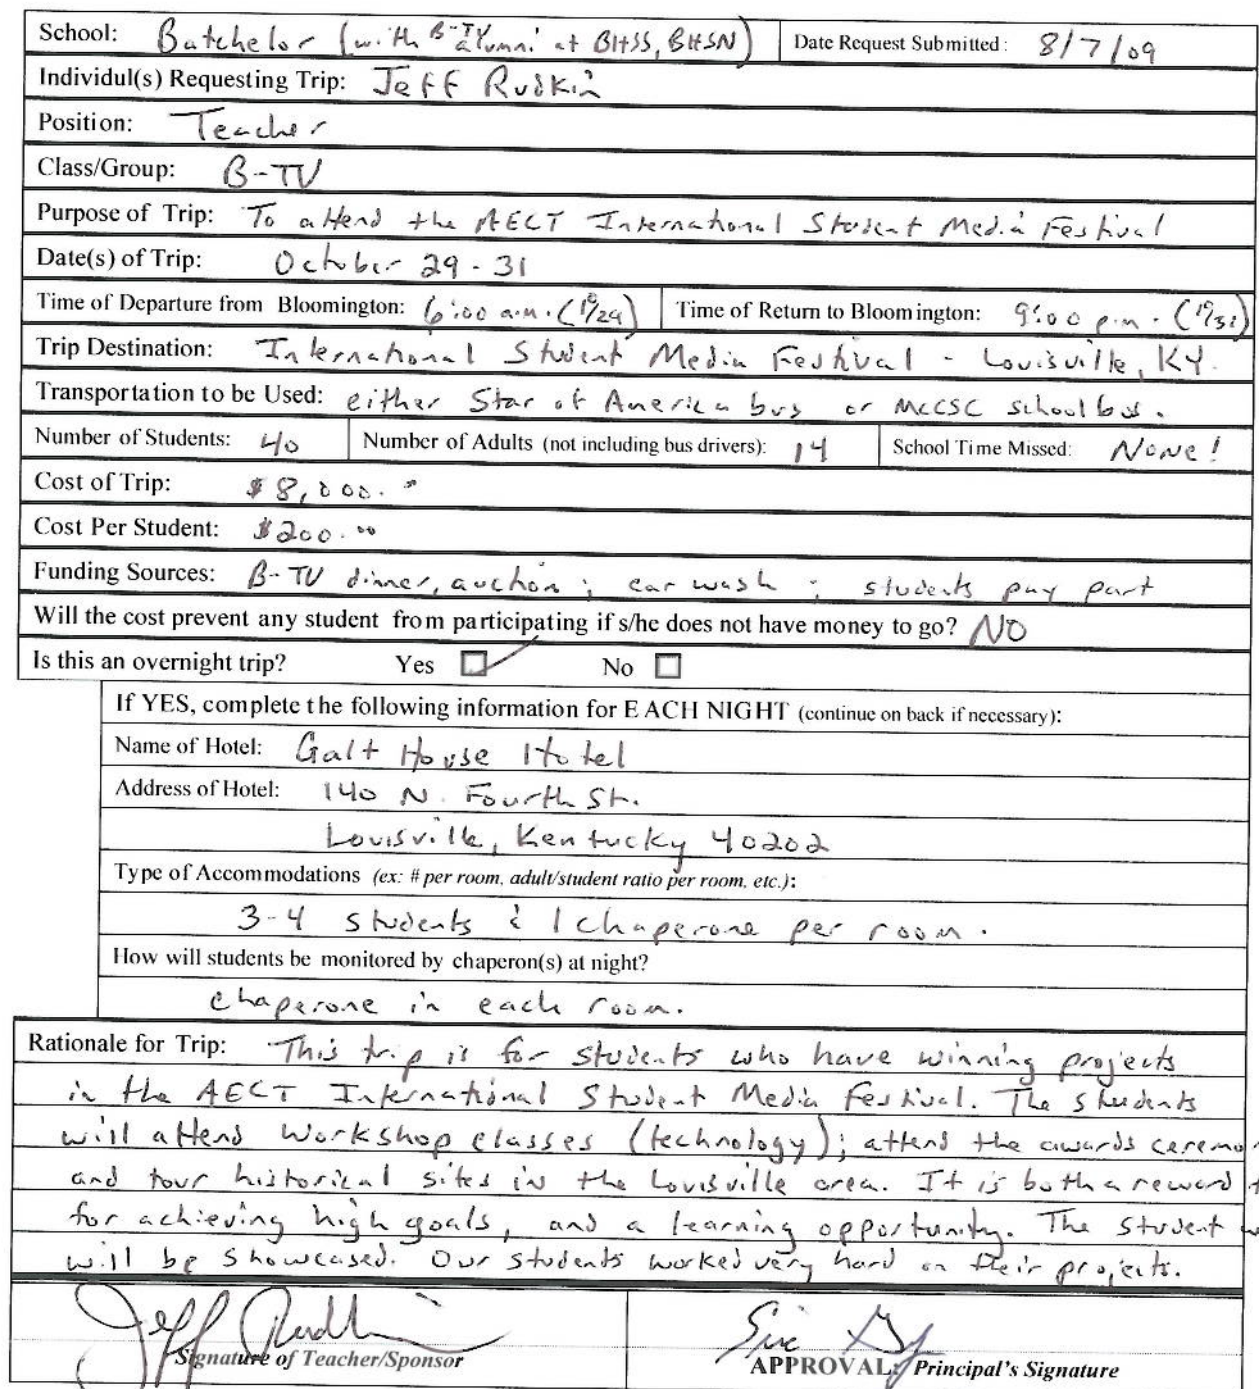 School: Batchelor (with B-TV alumni at BHSS, BHSN) Date Request Submitted: 8/7/09
Individul(s) Requesting Trip: Jeff Rudkin
Position: Teacher
Class/Group: B-TV
Purpose of Trip: To attend the AECT International Student Media Festival
Date(s) of Trip: October 29-31
Time of Departure from Bloomington: 6:00 a.m. (10/29) Time of Return to Bloomington: 9:00 p.m. (10/31)
Trip Destination: International Student Media Festival - Louisville, KY.
Transportation to be Used: either Star of America bus or MCCSC school bus.
Number of Students: 40 Number of Adults (not including bus drivers): 14 School Time Missed: None!
Cost of Trip: $8,000.00
Cost Per Student: $200.00
Funding Sources: B-TV dinner, auction; car wash; students pay part
Will the cost prevent any student from participating if s/he does not have money to go? NO
Is this an overnight trip? Yes ☑ No ☐
If YES, complete the following information for EACH NIGHT (continue on back if necessary):
Name of Hotel: Galt House Hotel
Address of Hotel: 140 N. Fourth St.
Louisville, Kentucky 40202
Type of Accommodations (ex: # per room, adult/student ratio per room, etc.):
3-4 students & 1 chaperone per room.
How will students be monitored by chaperon(s) at night?
chaperone in each room.
Rationale for Trip: This trip is for students who have winning projects
in the AECT International Student Media Festival. The students
will attend workshop classes (technology); attend the awards ceremo
and tour historical sites in the Louisville area. It is both a reward
for achieving high goals, and a learning opportunity. The student w
will be showcased. Our students worked very hard on their projects.
Jeff Rudkin
Signature of Teacher/Sponsor
APPROVAL: Principal's Signature